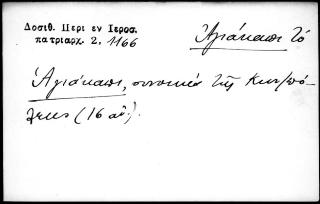 Δοσιθ. Περι εν Ιεροσ.
πατριαρχ. 2, 1166
Ἁγιάκαπι τό
Ἁγιάκαπι, συνοικία τῆς Κων/πό-
λεως (16 αἰ.).